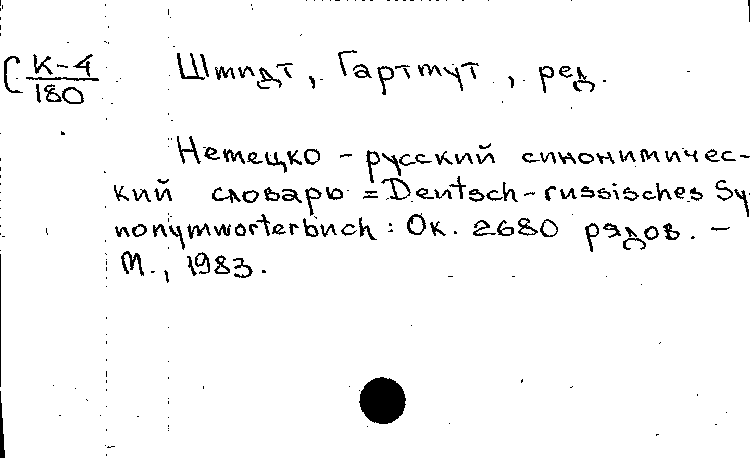 С К-4 Штидт, Гартмут, ред.
180
Немецко - русский синонимичес-
кий словарь = Deutsch-russisches Sy
nonymworterbuch : Ок. 2680 рядов. -
М., 1983.